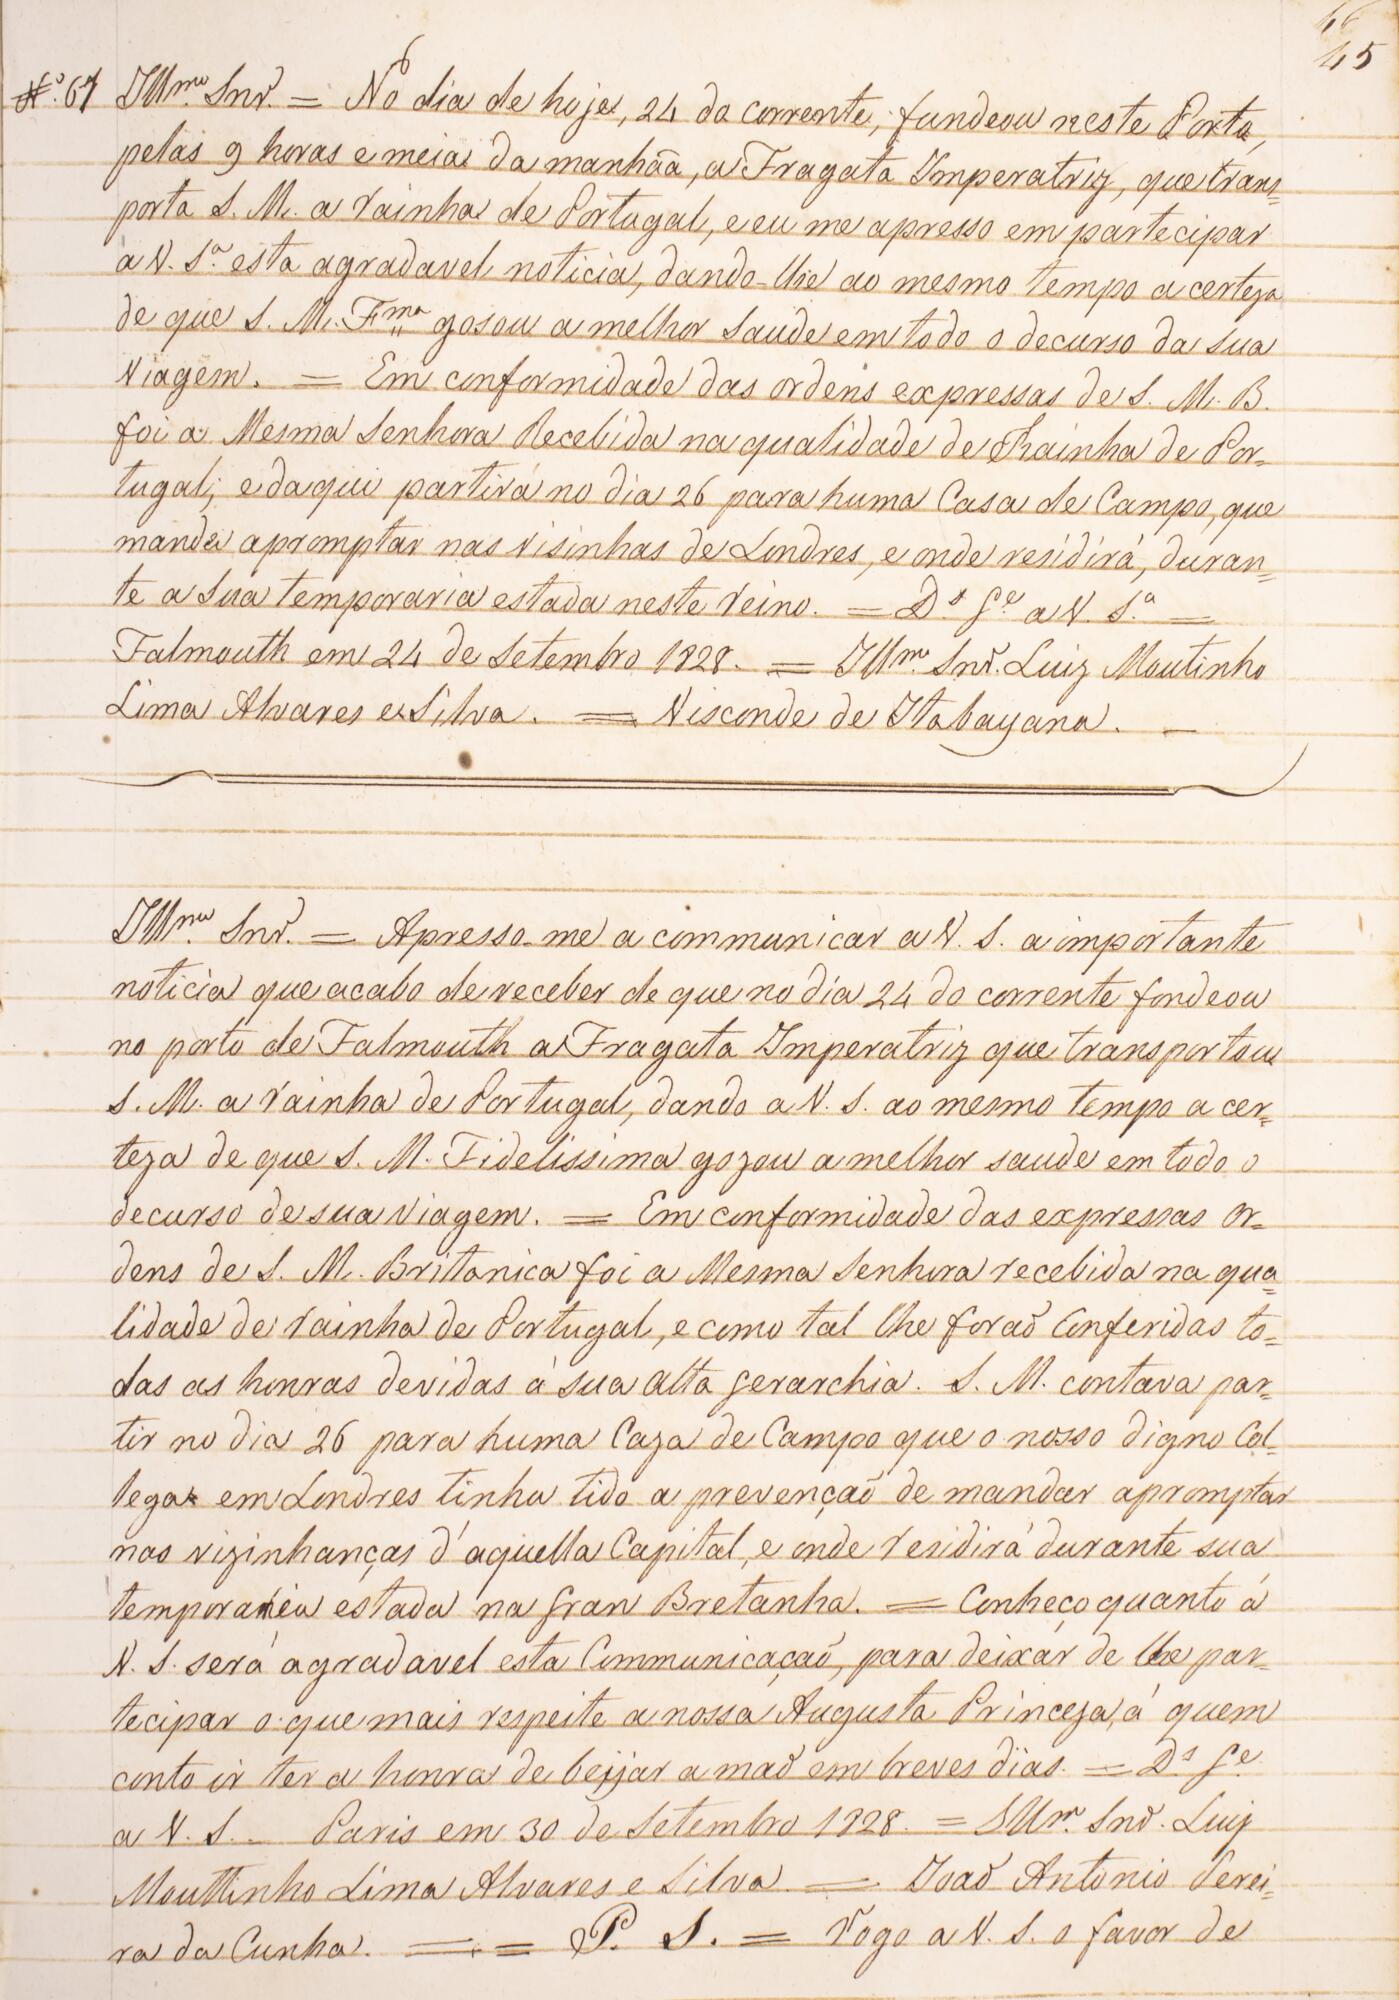 45
Nº. 67 Illmo. Snr. = No dia de hoje, 24 do corrente, fundeou neste Porto,
pelas 9 horas e meia da manhãa, a Fragata Imperatriz, que trans=
porta S. M. a rainha de Portugal, e eu me apresso em partecipar
a V. Sa. esta agradavel noticia, dando-lhe ao mesmo tempo a certeza
de que S. M. Fma gosou a melhor saude em todo o decurso da sua
viagem. = Em conformidade das ordens expressas de S. M. B.
foi a Mesma Senhora Recebida na qualidade de Rainha de Por=
tugal; e daqui partirá no dia 26 para huma Casa de Campo, que
mandei apromptar nas visinhas de Londres, e onde residirá, duran=
te a sua temporaria estada neste reino. = Ds. Ge. a V. Sa. =
Falmouth em 24 de Setembro 1828. = Illmo. Snr. Luiz Moutinho
Lima Alvares e Silva. = Visconde de Itabayana. —
Illmo. Snr. = Apresso-me a communicar a V. S. a importante
noticia que acabo de receber de que no dia 24 do corrente fondeou
no porto de Falmouth a Fragata Imperatriz que transportou
S. M. a rainha de Portugal, dando a V. S. ao mesmo tempo a cer=
teza de que S. M. Fidelissima gozou a melhor saude em todo o
decurso de sua viagem. = Em conformidade das expressas or=
dens de S. M. Britanica foi a Mesma Senhora recebida na qua=
lidade de rainha de Portugal, e como tal lhe foraõ conferidas to=
das as honras devidas á sua alta gerarchia. S. M. contava par=
tir no dia 26 para huma Caza de Campo que o nosso digno Col=
lega em Londres tinha tido a prevençaõ de mandar apromptar
nas vizinhanças d'aquella Capital, e onde residirá durante sua
temporaria estada na Gran Bretanha. = Conheço quanto á
V. S. será agradavel esta Communicaçaõ, para deixár de lhe par=
tecipar o que mais respeite a nossa Augusta Princeza, á quem
conto ir ter a honra de beijar a maõ em breves dias. = Ds Ge
a V. S. — Paris em 30 de Setembro 1828. = Illmo. Snr. Luiz
Mouttinho Lima Alvares e Silva = Joaõ Antonio Perei=
ra da Cunha. = = P. S. = Rogo a V. S. o favor de